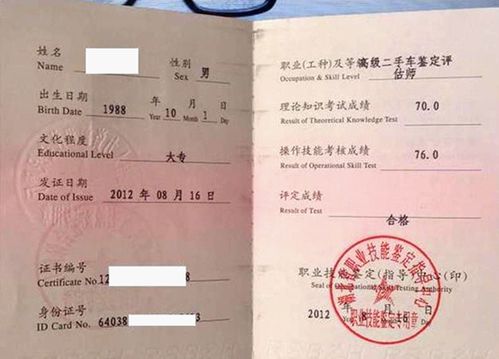 姓名
Name
性别
Sex 男
出生日期 年 月 日
Birth Date 1988 Year 10 Month 1 Day
文化程度
Educational Level 大专
发证日期
Date of Issue 2012 年 08 月 16 日
证书编号
Certificate No. 12 8
身份证号
ID Card No. 64038 3
职业(工种)及等级高级二手车鉴定评
Occupation & Skill Level 估师
理论知识考试成绩 70.0
Result of Theoretical Knowledge Test
操作技能考核成绩 76.0
Result of Operational Skill Test
评定成绩
Result of Test 合格
职业技能鉴定(指导)中心(印)
Seal of Occupational Skill Testing Authority
2012 年 8 月 16 日
职业技能鉴定指导中心
职业技能鉴定专用章